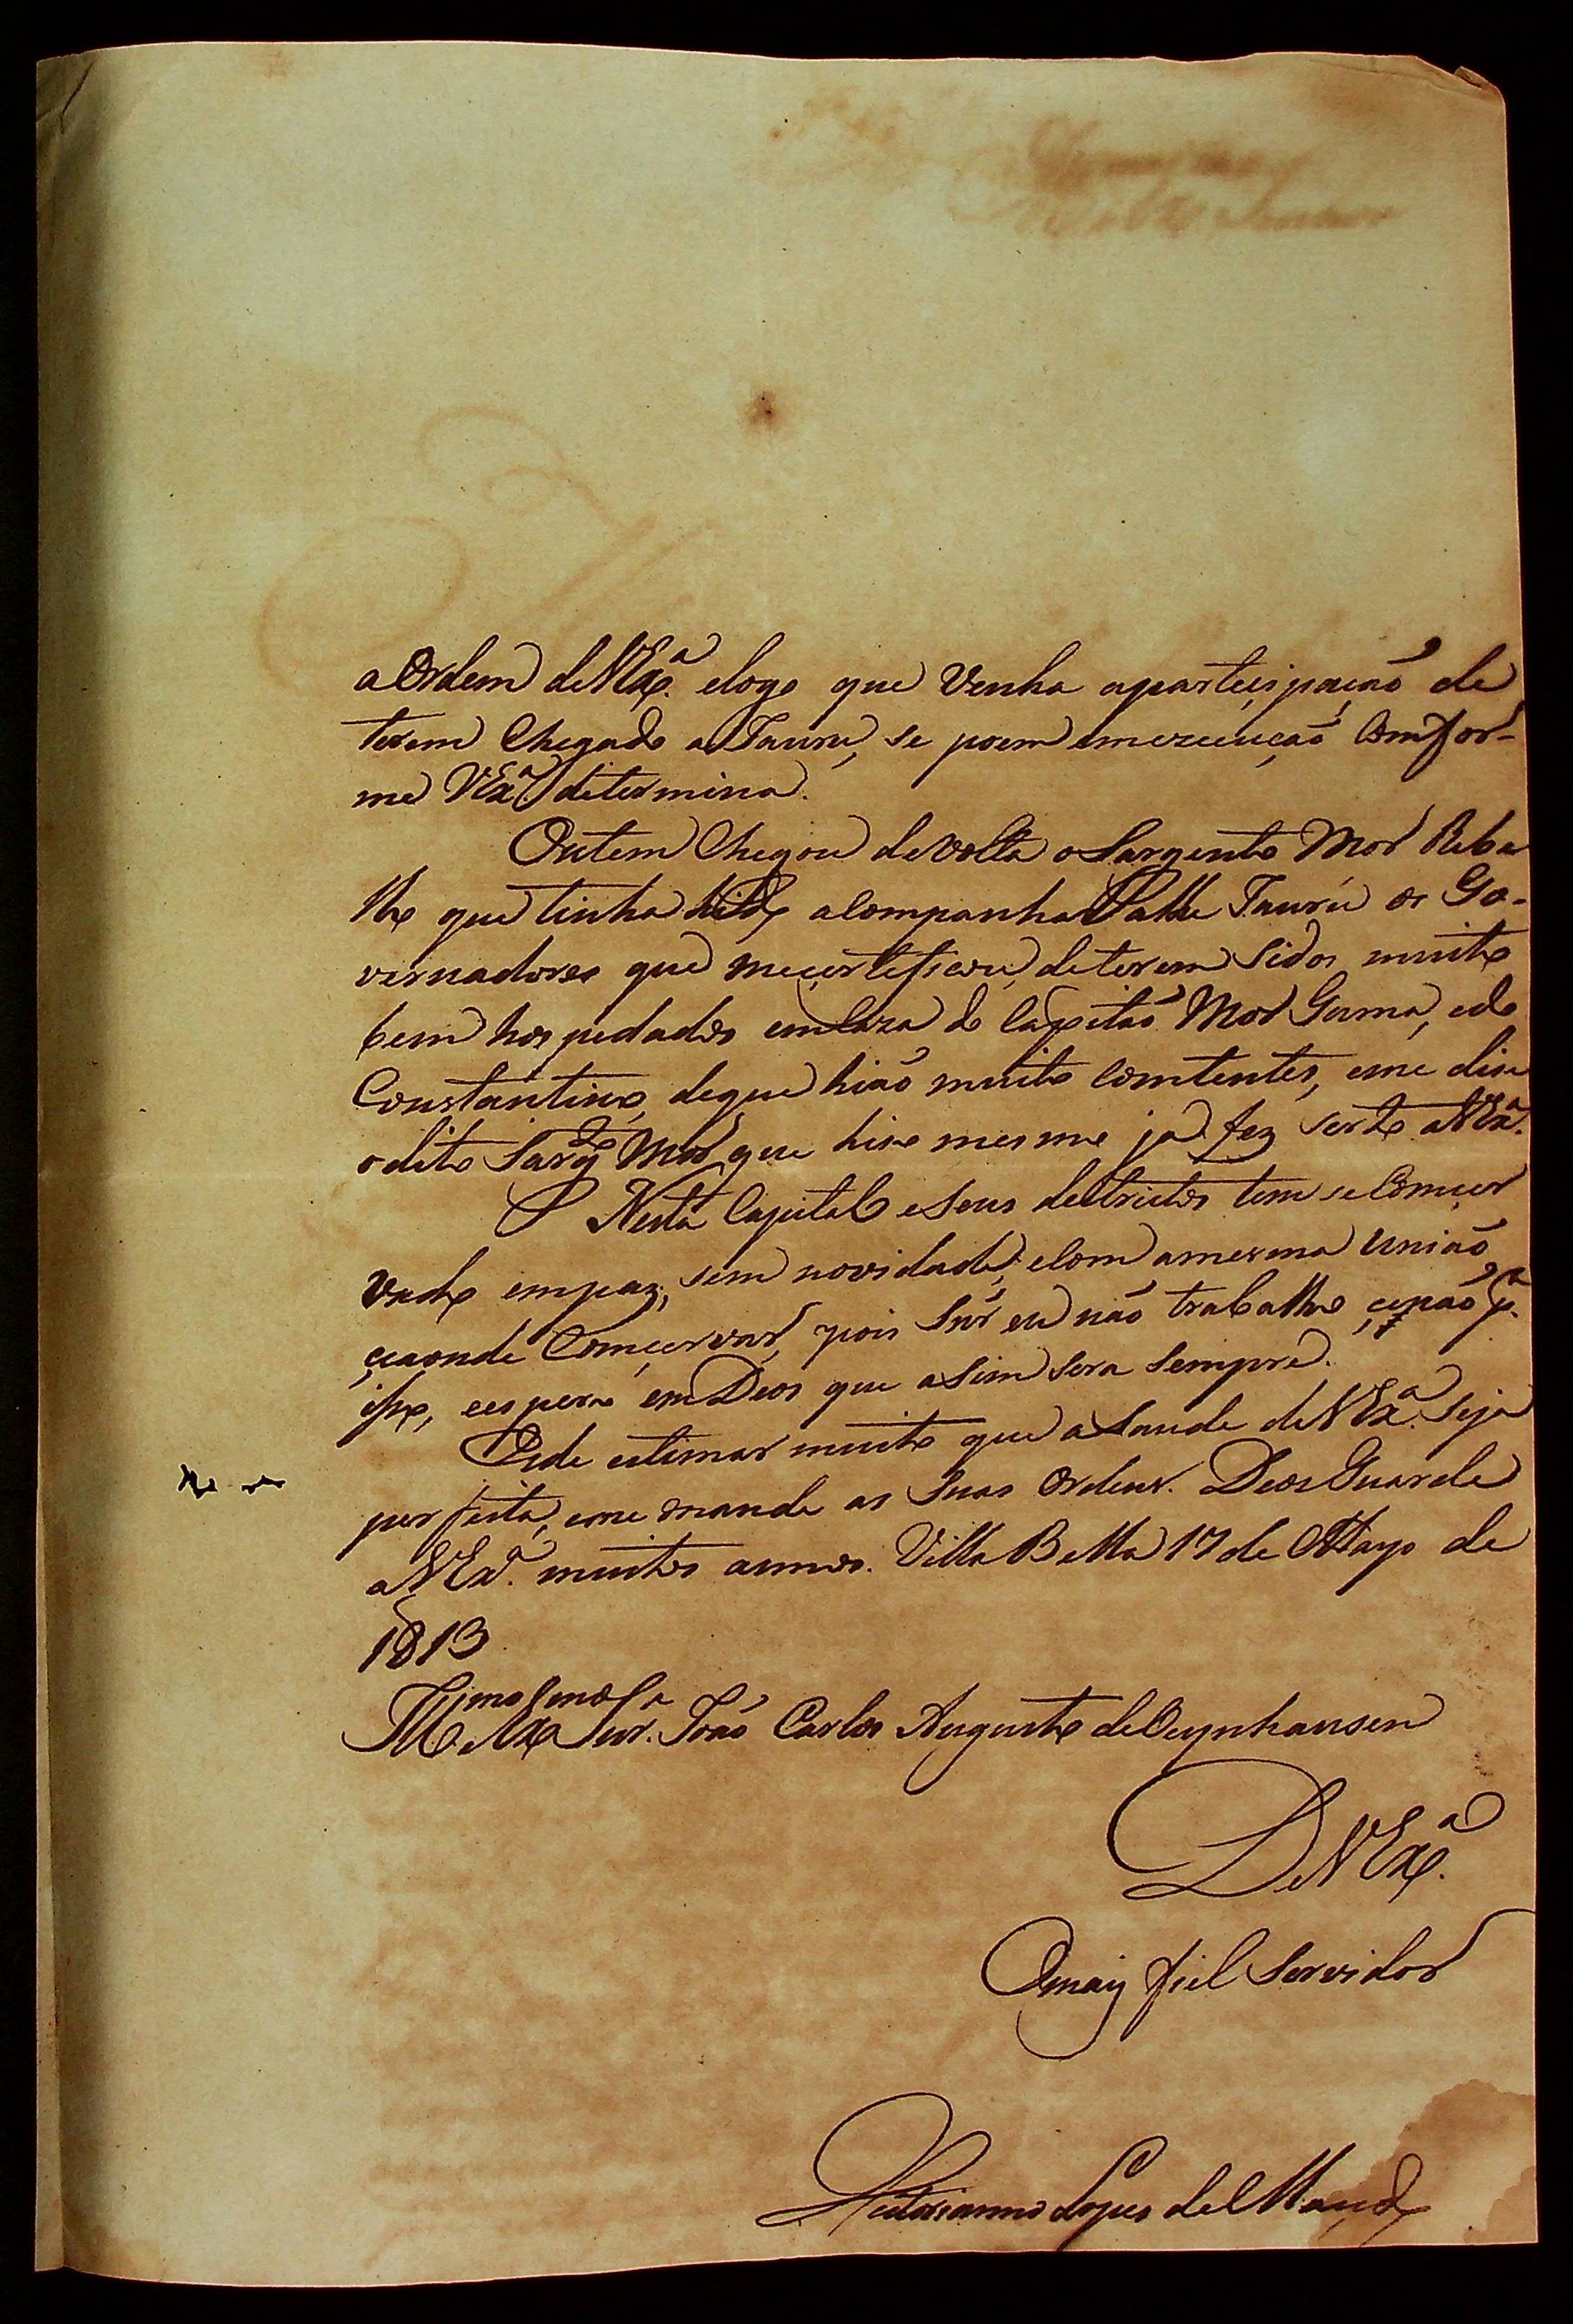 a Ordem de VEx.ª e logo que Venha aparteiçipaçaó de
terem Chegado a Jaurú, se poem em execuçaó Comfor-
me VEx.ª determina.
Ontem Chegou de volta o Sargento Mor Reba
llo que tinha hido acompanhar athe Jaurú os Go-
vernadores que me certeficou, de terem sidos muito
bem hospedados em Caza do Capitaõ Mor Gama, e do
Constantino, de que hiaó muito Comtentes, e me dise
o dito Sarg.to Mor que hiso mesmo ja fez serto a VEx.ª
Nesta Capital e seus destrictos tem se Comçer
vado em paz, sem novidade, e Com a mesma Uniaó,
Comçervar, pois Snr eu não trabalho çenaó p.ª
iso, e espero em Deos que asim sera sempre.
Ede estimar muito que a Saude de VEx.ª seja
perfeita, e me mande as Suas Ordens. Deos Guarde
a VEx.ª muitos annos. Villa Bella 17 de Mayo de
1813
Ill.mo e Ex.mo Snr. Joaó Carlos Augusto de Oeynhausen
De VEx.ª
O mais fiel Servidor
Victorianno Lopes de Maçedo